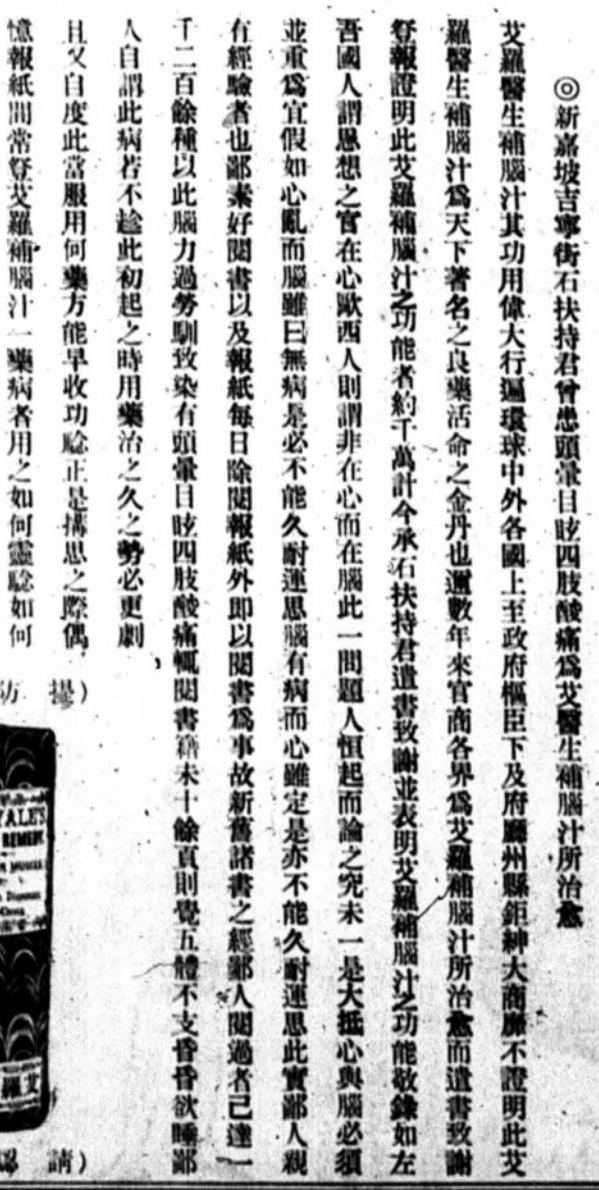 ◎新嘉坡吉寧街石扶持君曾患頭暈目眩四肢酸痛爲艾醫生補腦汁所治愈
艾羅醫生補腦汁其功用偉大行遍環球中外各國上至政府樞臣下及府廳州縣鉅紳大商靡不證明此艾
羅醫生補腦汁爲天下著名之良藥活命之金丹也邇數年來官商各界爲艾羅補腦汁所治愈而遺書致謝
登報證明此艾羅補腦汁之功能者約千萬計今承石扶持君遺書致謝並表明艾羅補腦汁之功能敬錄如左
吾國人謂思想之官在心歐西人則謂非在心而在腦此一問題人恒起而論之究未一是大抵心與腦必須
並重爲宜假如心亂而腦雖曰無病是必不能久耐運思腦有病而心雖定是亦不能久耐運思此實鄙人親
有經驗者也鄙素好閱書以及報紙每日除閱報紙外即以閱書爲事故新舊諸書之經鄙人閱過者已達一
千二百餘種以此腦力過勞馴致染有頭暈目眩四肢酸痛輒閱書籍未十餘頁則覺五體不支昏昏欲睡鄙
人自謂此病若不趁此初起之時用藥治之久之勢必更劇
且又自度此當服用何藥方能早收功騐正是搆思之際偶
憶報紙間常登艾羅補腦汁一藥病者用之如何靈騐如何
提)
防
請)
認
YALE'S
REMEDY
艾
羅